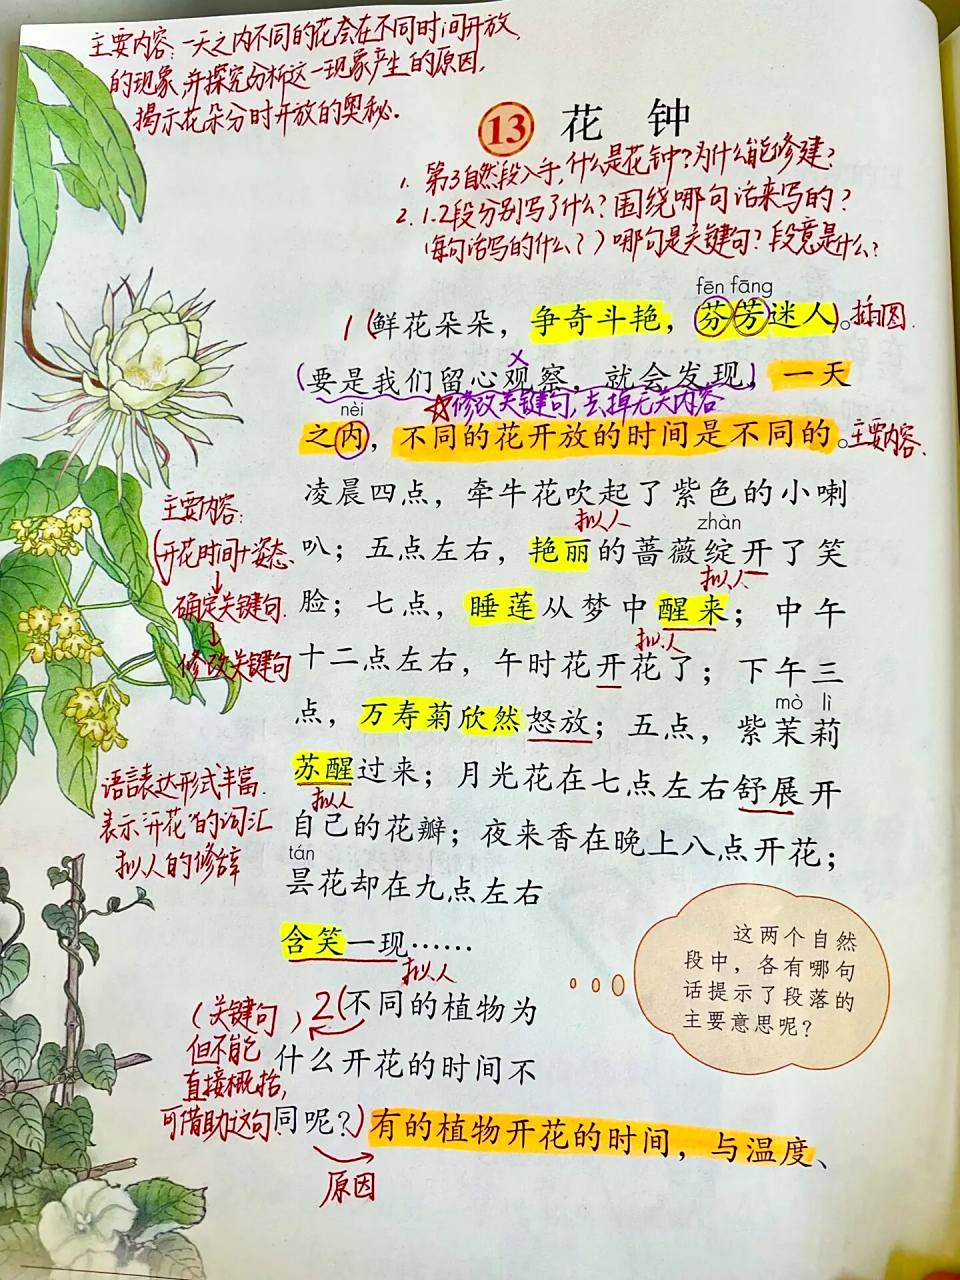 主要内容:一天之内不同的花会在不同时间开放
的现象,并探究分析这一现象产生的原因,
揭示花朵分时开放的奥秘.
13 花 钟
1. 第3自然段入手,什么是花钟?为什么能修建?
2. 1.2段分别写了什么?围绕哪句话来写的?
(每句话写的什么?)哪句是关键句?段意是什么?
fēn fāng
1(鲜花朵朵,争奇斗艳,芬芳迷人)。插图.
(要是我们留心观察,就会发现),一天
nèi
☆修改关键句,去掉无关内容
之内,不同的花开放的时间是不同的。主要内容.
凌晨四点,牵牛花吹起了紫色的小喇
拟人 zhàn
叭;五点左右,艳丽的蔷薇绽开了笑
拟人
脸;七点,睡莲从梦中醒来;中午
拟人
十二点左右,午时花开花了;下午三
mò lì
点,万寿菊欣然怒放;五点,紫茉莉
苏醒过来;月光花在七点左右舒展开
拟人
自己的花瓣;夜来香在晚上八点开花;
tán
昙花却在九点左右
含笑一现……
拟人
主要内容:
(开花时间+姿态.
↓
确定关键句.
↓
修改关键句
语言表达形式丰富.
表示"开花"的词汇
拟人的修辞
这两个自然
段中,各有哪句
话提示了段落的
主要意思呢?
2(不同的植物为
什么开花的时间不
同呢?)有的植物开花的时间,与温度、
(关键句)
但不能
直接概括,
可借助这句.
原因